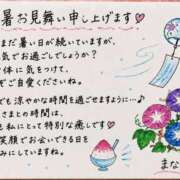 暑お見舞い申し上げます♡
まだ暑い日が続いていますが、
気でお過ごしでしょうか？
体に気をつけて、
ご自愛ください
でも涼やかな時間を過ごせますように…♪
さまとの時間は、
にとっても特別な癒しです♡
笑顔でお会いできる日を
しみにしていますね。
まな